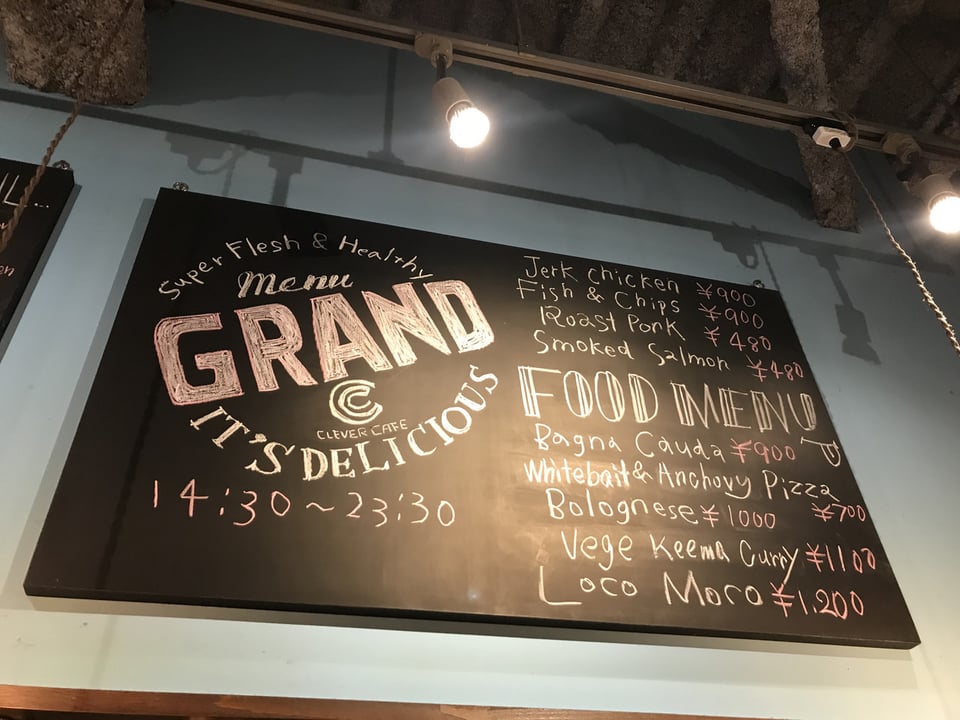 Super Flesh & Healthy
Menu
GRAND
CLEVER CAFE
IT'S DELICIOUS
14:30~23:30
Jerk chicken ¥900
Fish & Chips ¥900
Roast Pork ¥480
Smoked Salmon ¥480
FOOD MENU
Bagna Cauda ¥900
Whitebait & Anchovy Pizza
¥700
Bolognese ¥1000
Vege Keema Curry ¥1100
Loco Moco ¥1.200